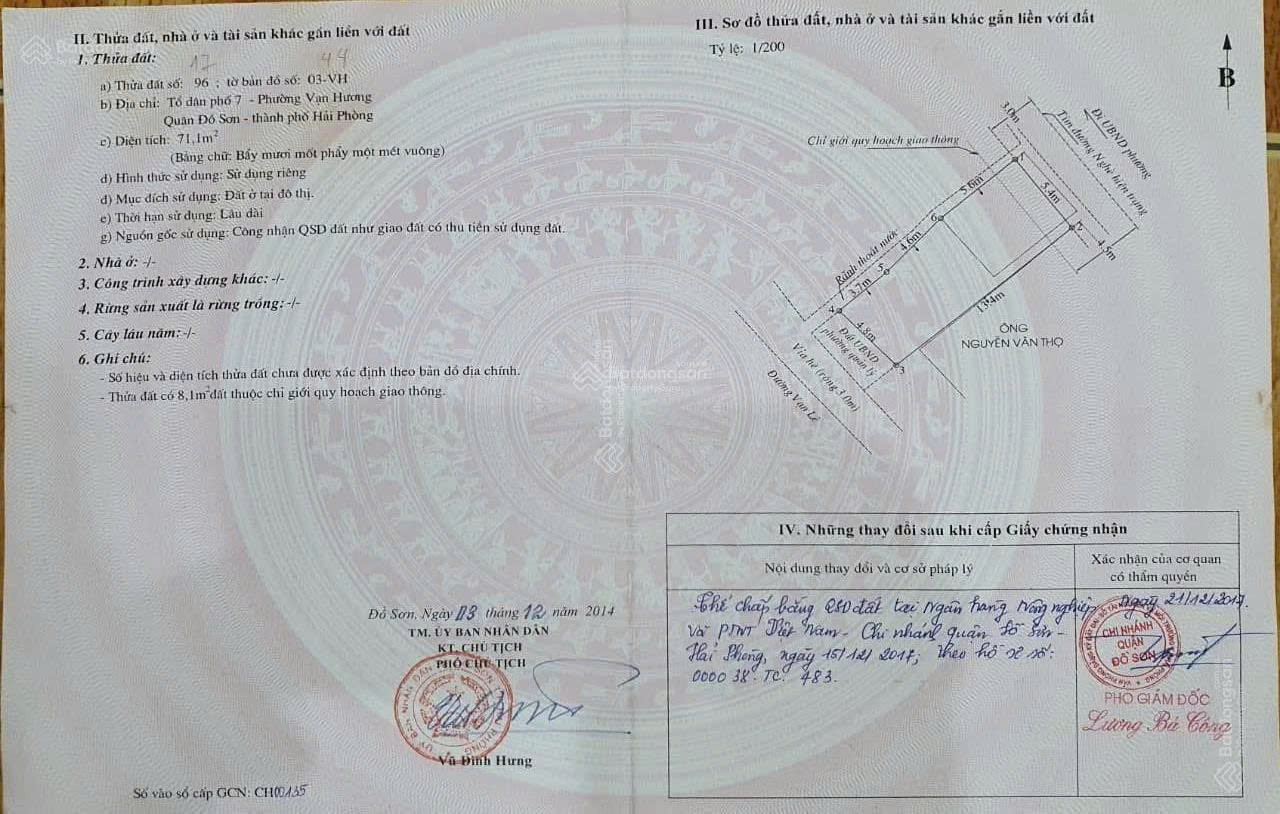 II. Thửa đất, nhà ở và tài sản khác gắn liền với đất
1. Thửa đất:
17 44
a) Thửa đất số: 96 ; tờ bản đồ số: 03-VH
b) Địa chỉ: Tổ dân phố 7 - Phường Vạn Hương
Quận Đồ Sơn - thành phố Hải Phòng
c) Diện tích: 71,1m²
(Bằng chữ: Bẩy mươi mốt phẩy một mét vuông)
d) Hình thức sử dụng: Sử dụng riêng
đ) Mục đích sử dụng: Đất ở tại đô thị.
e) Thời hạn sử dụng: Lâu dài
g) Nguồn gốc sử dụng: Công nhận QSD đất như giao đất có thu tiền sử dụng đất.
2. Nhà ở: -/-
3. Công trình xây dựng khác: -/-
4. Rừng sản xuất là rừng trồng: -/-
5. Cây lâu năm: -/-
6. Ghi chú:
- Số hiệu và diện tích thửa đất chưa được xác định theo bản đồ địa chính.
- Thửa đất có 8,1m² đất thuộc chỉ giới quy hoạch giao thông.
Đồ Sơn, Ngày 03 tháng 12 năm 2014
TM. ỦY BAN NHÂN DÂN
KT. CHỦ TỊCH
PHÓ CHỦ TỊCH
Vũ Đình Hưng
Số vào sổ cấp GCN: CH00135
III. Sơ đồ thửa đất, nhà ở và tài sản khác gắn liền với đất
Tỷ lệ: 1/200
B
Chỉ giới quy hoạch giao thông
3.0m
Đi UBND phường
Tim đường Nghè hiện trạng
1
5.6m
5.4m
6
2
4.5m
Rãnh thoát nước
4.6m
5
3.7m
4
13.4m
4.8m
Đất UBND
phường quản lý
3
ÔNG
NGUYỄN VĂN THỌ
Vỉa hè (rộng 3.0m)
Đường Vạn Lê
IV. Những thay đổi sau khi cấp Giấy chứng nhận
Nội dung thay đổi và cơ sở pháp lý
Xác nhận của cơ quan
có thẩm quyền
Thế chấp bằng QSD đất tại Ngân hàng Nông nghiệp
và PTNT Việt Nam - Chi nhánh quận Đồ Sơn -
Hải Phòng, ngày 15/12/2017; theo hồ sơ số:
000038.TC.483.
Ngày 21/12/2017
CHI NHÁNH
QUẬN
ĐỒ SƠN
PHÓ GIÁM ĐỐC
Lương Bá Công
Batdongsan
Batdongsan
Batdongsan
Batdongsan